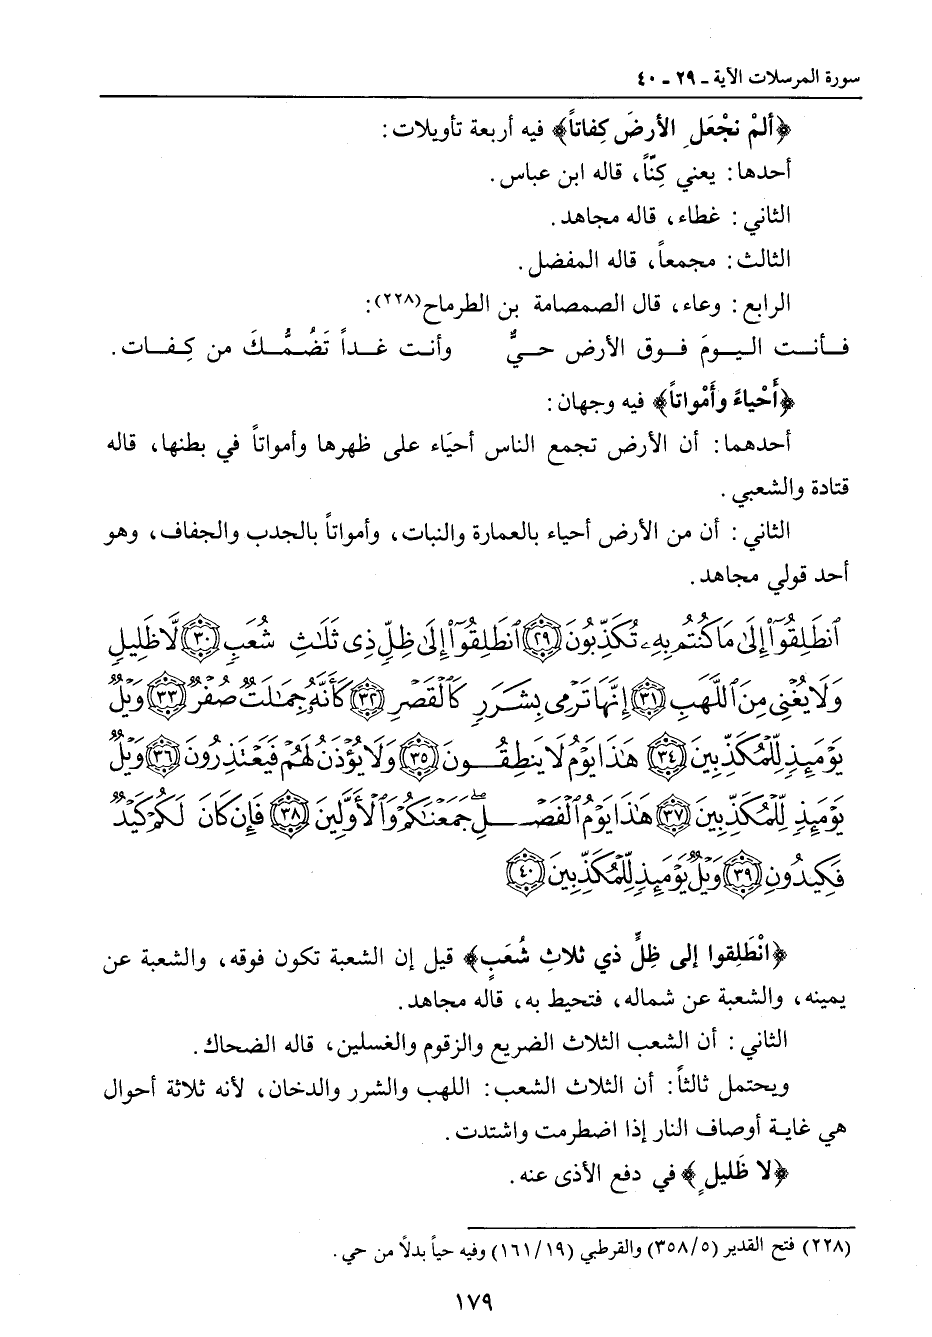 سورة المرسلات الآية ـ ٢٩ ـ ٤٠
﴿ألمْ نجْعَلِ الأرضَ كِفاتاً﴾ فيه أربعة تأويلات:
أحدها: يعني كِنّاً، قاله ابن عباس.
الثاني: غطاء، قاله مجاهد.
الثالث: مجمعاً، قاله المفضل.
الرابع: وعاء، قال الصمصامة بن الطرماح(٢٢٨):
فـأنـت اليـومَ فـوق الأرض حـيٌّ وأنـت غـداً تَضُـمُّـكَ من كِـفـات.
﴿أَحْياءً وأَمْواتاً﴾ فيه وجهان:
أحدهما: أن الأرض تجمع الناس أحيَاء على ظهرها وأمواتاً في بطنها، قاله
قتادة والشعبي.
الثاني: أن من الأرض أحياء بالعمارة والنبات، وأمواتاً بالجدب والجفاف، وهو
أحد قولي مجاهد.
ٱنطَلِقُوٓا۟ إِلَىٰ مَا كُنتُم بِهِۦ تُكَذِّبُونَ ٢٩ ٱنطَلِقُوٓا۟ إِلَىٰ ظِلٍّ ذِى ثَلَٰثِ شُعَبٍ ٣٠ لَّا ظَلِيلٍ
وَلَا يُغْنِى مِنَ ٱللَّهَبِ ٣١ إِنَّهَا تَرْمِى بِشَرَرٍ كَٱلْقَصْرِ ٣٢ كَأَنَّهُۥ جِمَٰلَتٌ صُفْرٌ ٣٣ وَيْلٌ
يَوْمَئِذٍ لِّلْمُكَذِّبِينَ ٣٤ هَٰذَا يَوْمُ لَا يَنطِقُونَ ٣٥ وَلَا يُؤْذَنُ لَهُمْ فَيَعْتَذِرُونَ ٣٦ وَيْلٌ
يَوْمَئِذٍ لِّلْمُكَذِّبِينَ ٣٧ هَٰذَا يَوْمُ ٱلْفَصْلِ ۖ جَمَعْنَٰكُمْ وَٱلْأَوَّلِينَ ٣٨ فَإِن كَانَ لَكُمْ كَيْدٌ
فَكِيدُونِ ٣٩ وَيْلٌ يَوْمَئِذٍ لِّلْمُكَذِّبِينَ ٤٠
﴿انْطَلِقوا إلى ظِلٍّ ذي ثلاثِ شُعَبٍ﴾ قيل إن الشعبة تكون فوقه، والشعبة عن
يمينه، والشعبة عن شماله، فتحيط به، قاله مجاهد.
الثاني: أن الشعب الثلاث الضريع والزقوم والغسلين، قاله الضحاك.
ويحتمل ثالثاً: أن الثلاث الشعب: اللهب والشرر والدخان، لأنه ثلاثة أحوال
هي غاية أوصاف النار إذا اضطرمت واشتدت.
﴿لا ظَليلٍ﴾ في دفع الأذى عنه.
(٢٢٨) فتح القدير (٣٥٨/٥) والقرطبي (١٦١/١٩) وفيه حياً بدلاً من حي.
١٧٩